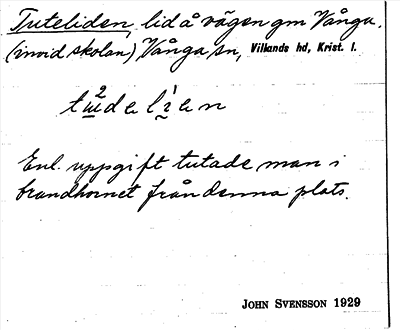 Tuteliden, lid å vägen gm Vånga.
(invid skolan) Vånga sn, Villands hd, Krist. l.
tu²delì̯en
Enl. uppgift tutade man i
brandhornet från denna plats.
JOHN SVENSSON 1929